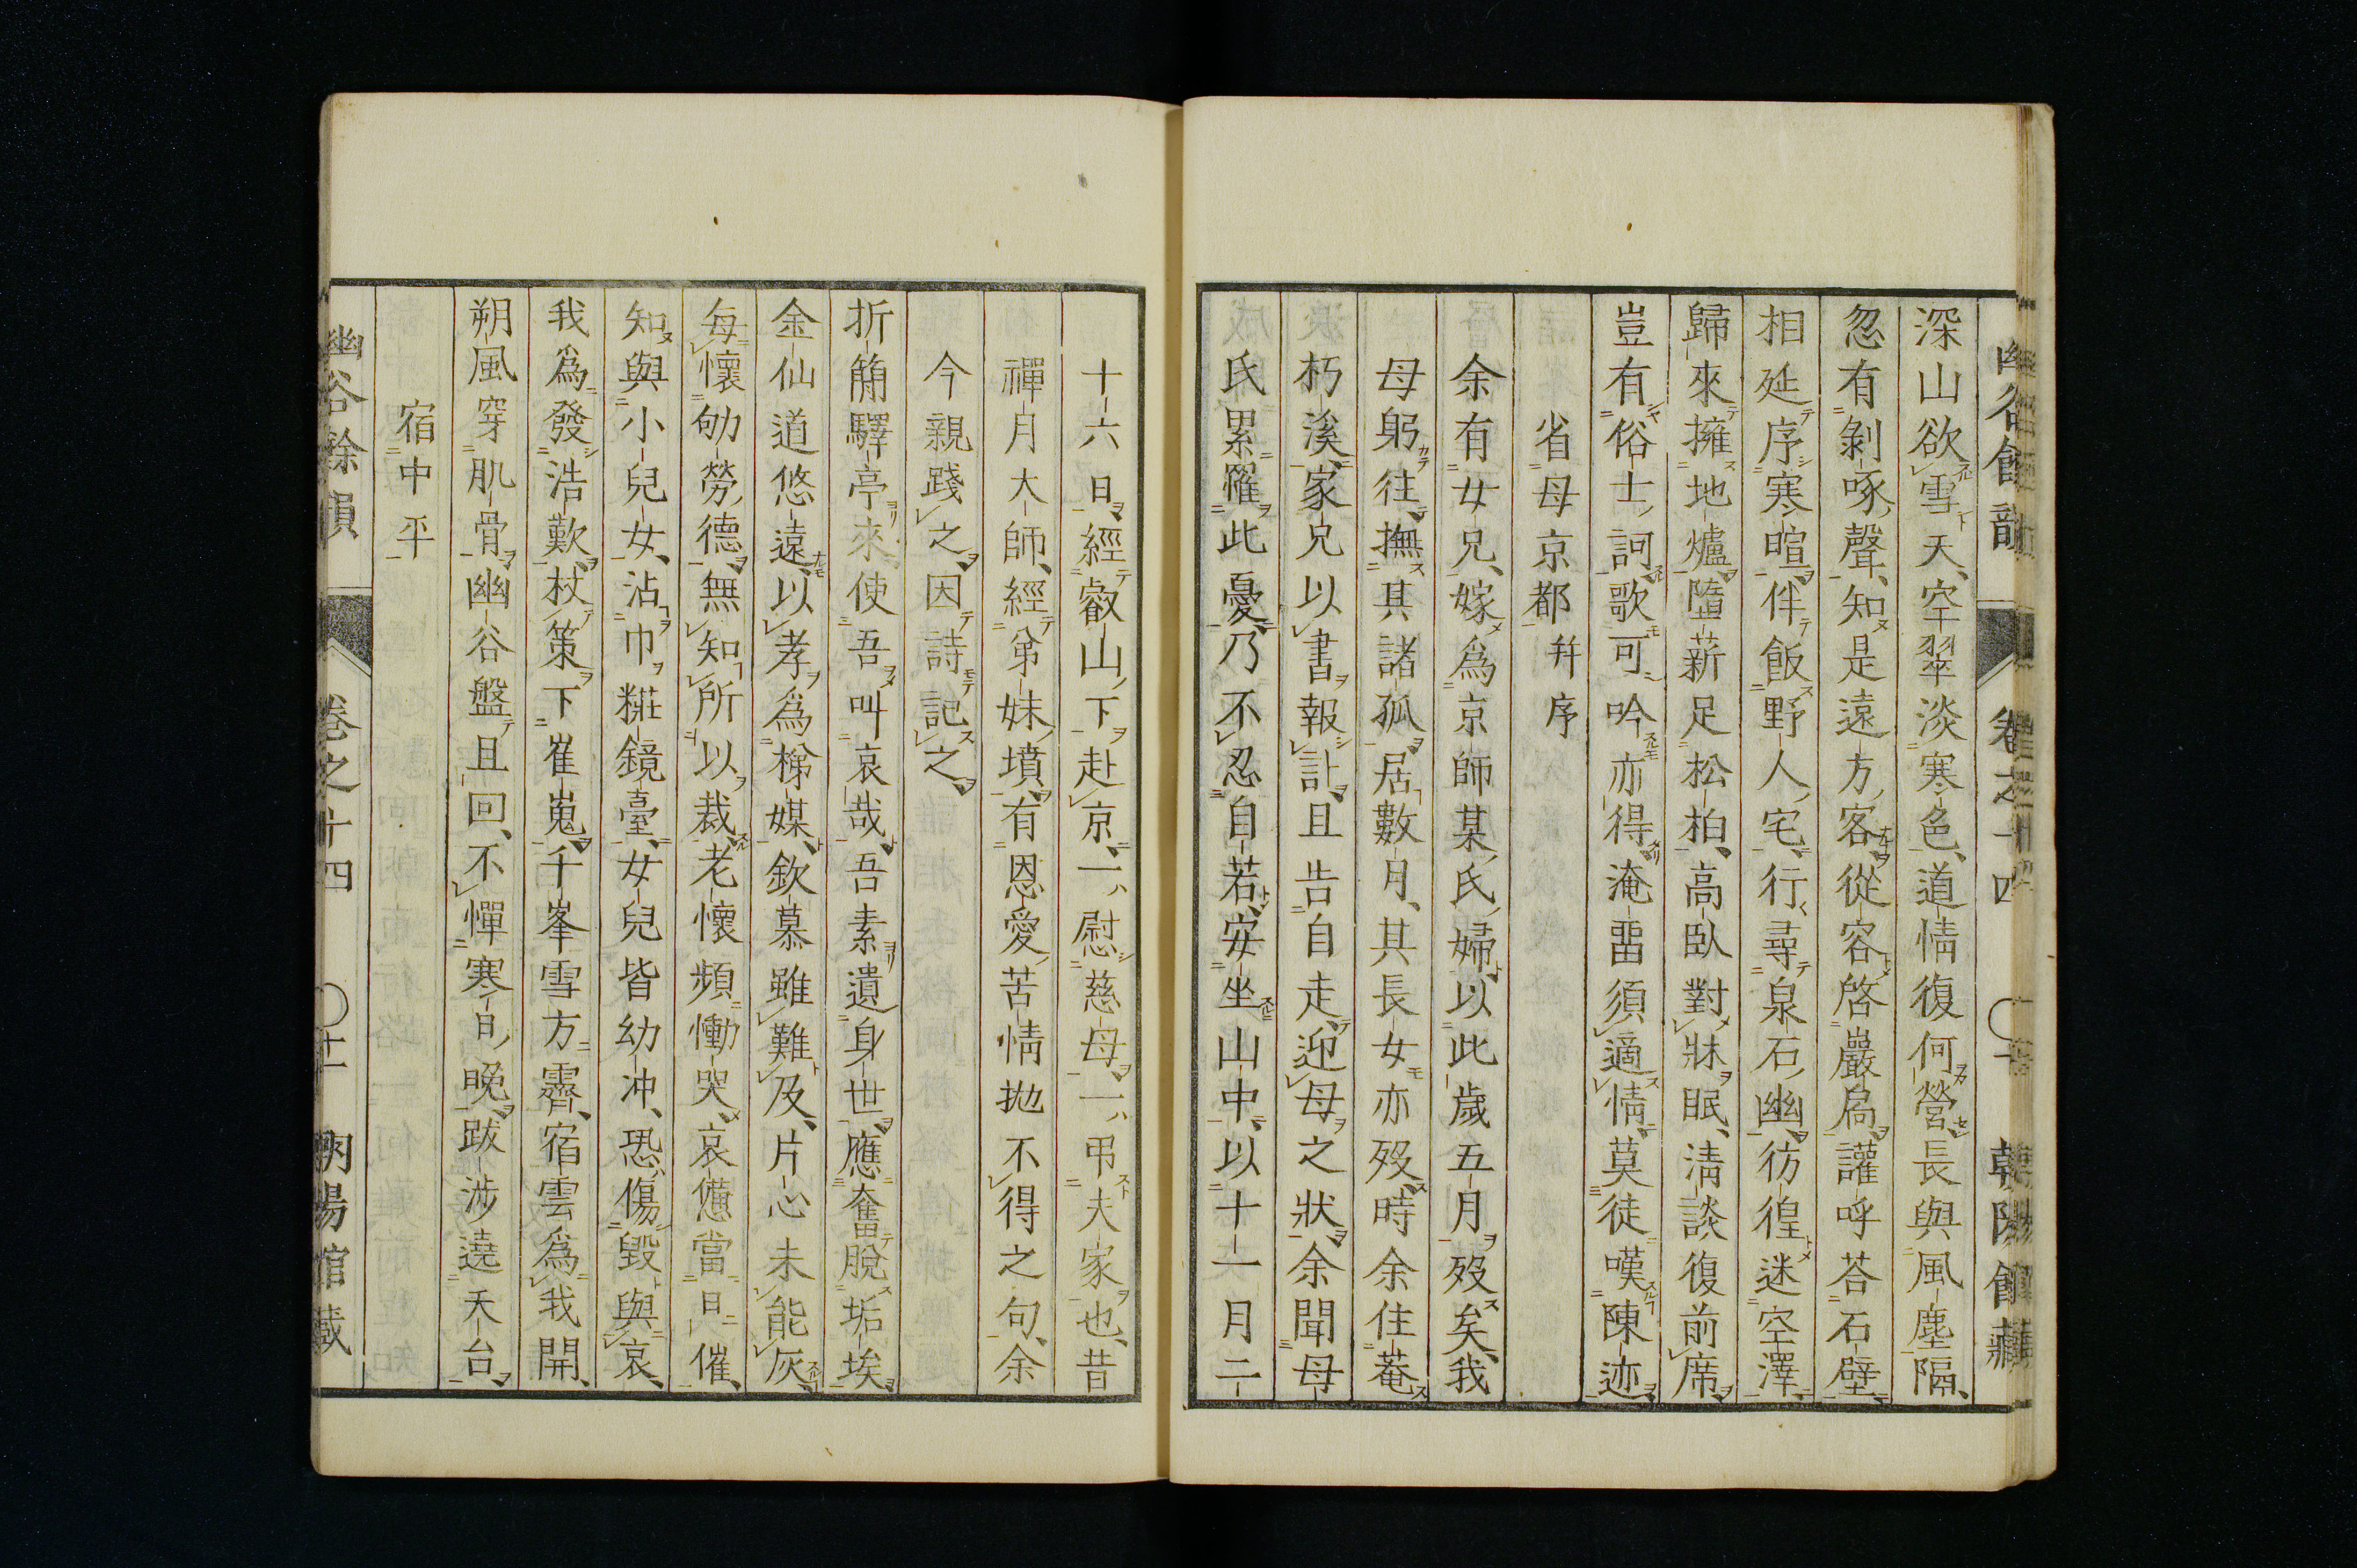 幽谷餘韻 卷之十四 〇十 朝陽館藏
深山欲雪天、空翠淡寒色、道情復何營長與風塵隔、
忽有剝啄聲、知是遠方客從容啓巖扃、讙呼荅石壁、
相延序寒暄、伴飯野人宅、行尋泉石幽、彷徨迷空澤、
歸來擁地爐、墮薪足松柏、高臥對牀眠、淸談復前席、
豈有俗士訶歌可吟亦得淹畱須適情莫徒嘆陳迹、
省母京都 幷序
余有女兄、嫁爲京師某氏婦、以此歲五月歿矣、我
母躬往、撫其諸孤、居數月、其長女亦歿、時余住菴
朽溪、家兄以書報訃、且告自走迎母之狀、余聞母
氏累罹此憂、乃不忍自若、安坐山中、以十一月二
十六日、經叡山下赴京、一慰慈母、一弔夫家也、昔
禪月大師、經弟妹墳、有恩愛苦情拋不得之句、余
今親踐之、因詩記之、
折簡驛亭來使吾叫哀哉、吾素遺身世、應奮脫垢埃、
金仙道悠遠、以孝爲梯媒、欽慕雖難及、片心未能灰、
每懷劬勞德、無知所以裁、老懷頻慟哭、哀憊當日催、
知與小兒女、沾巾糚鏡臺、女兒皆幼冲、恐傷毀與哀、
我爲發浩歎、杖策下崔嵬、千峯雪方霽、宿雲爲我開、
朔風穿肌骨、幽谷盤且回、不憚寒日晚、跋涉遶天台、
宿中平
幽谷餘韻 卷之十四 〇十一 朝陽館藏